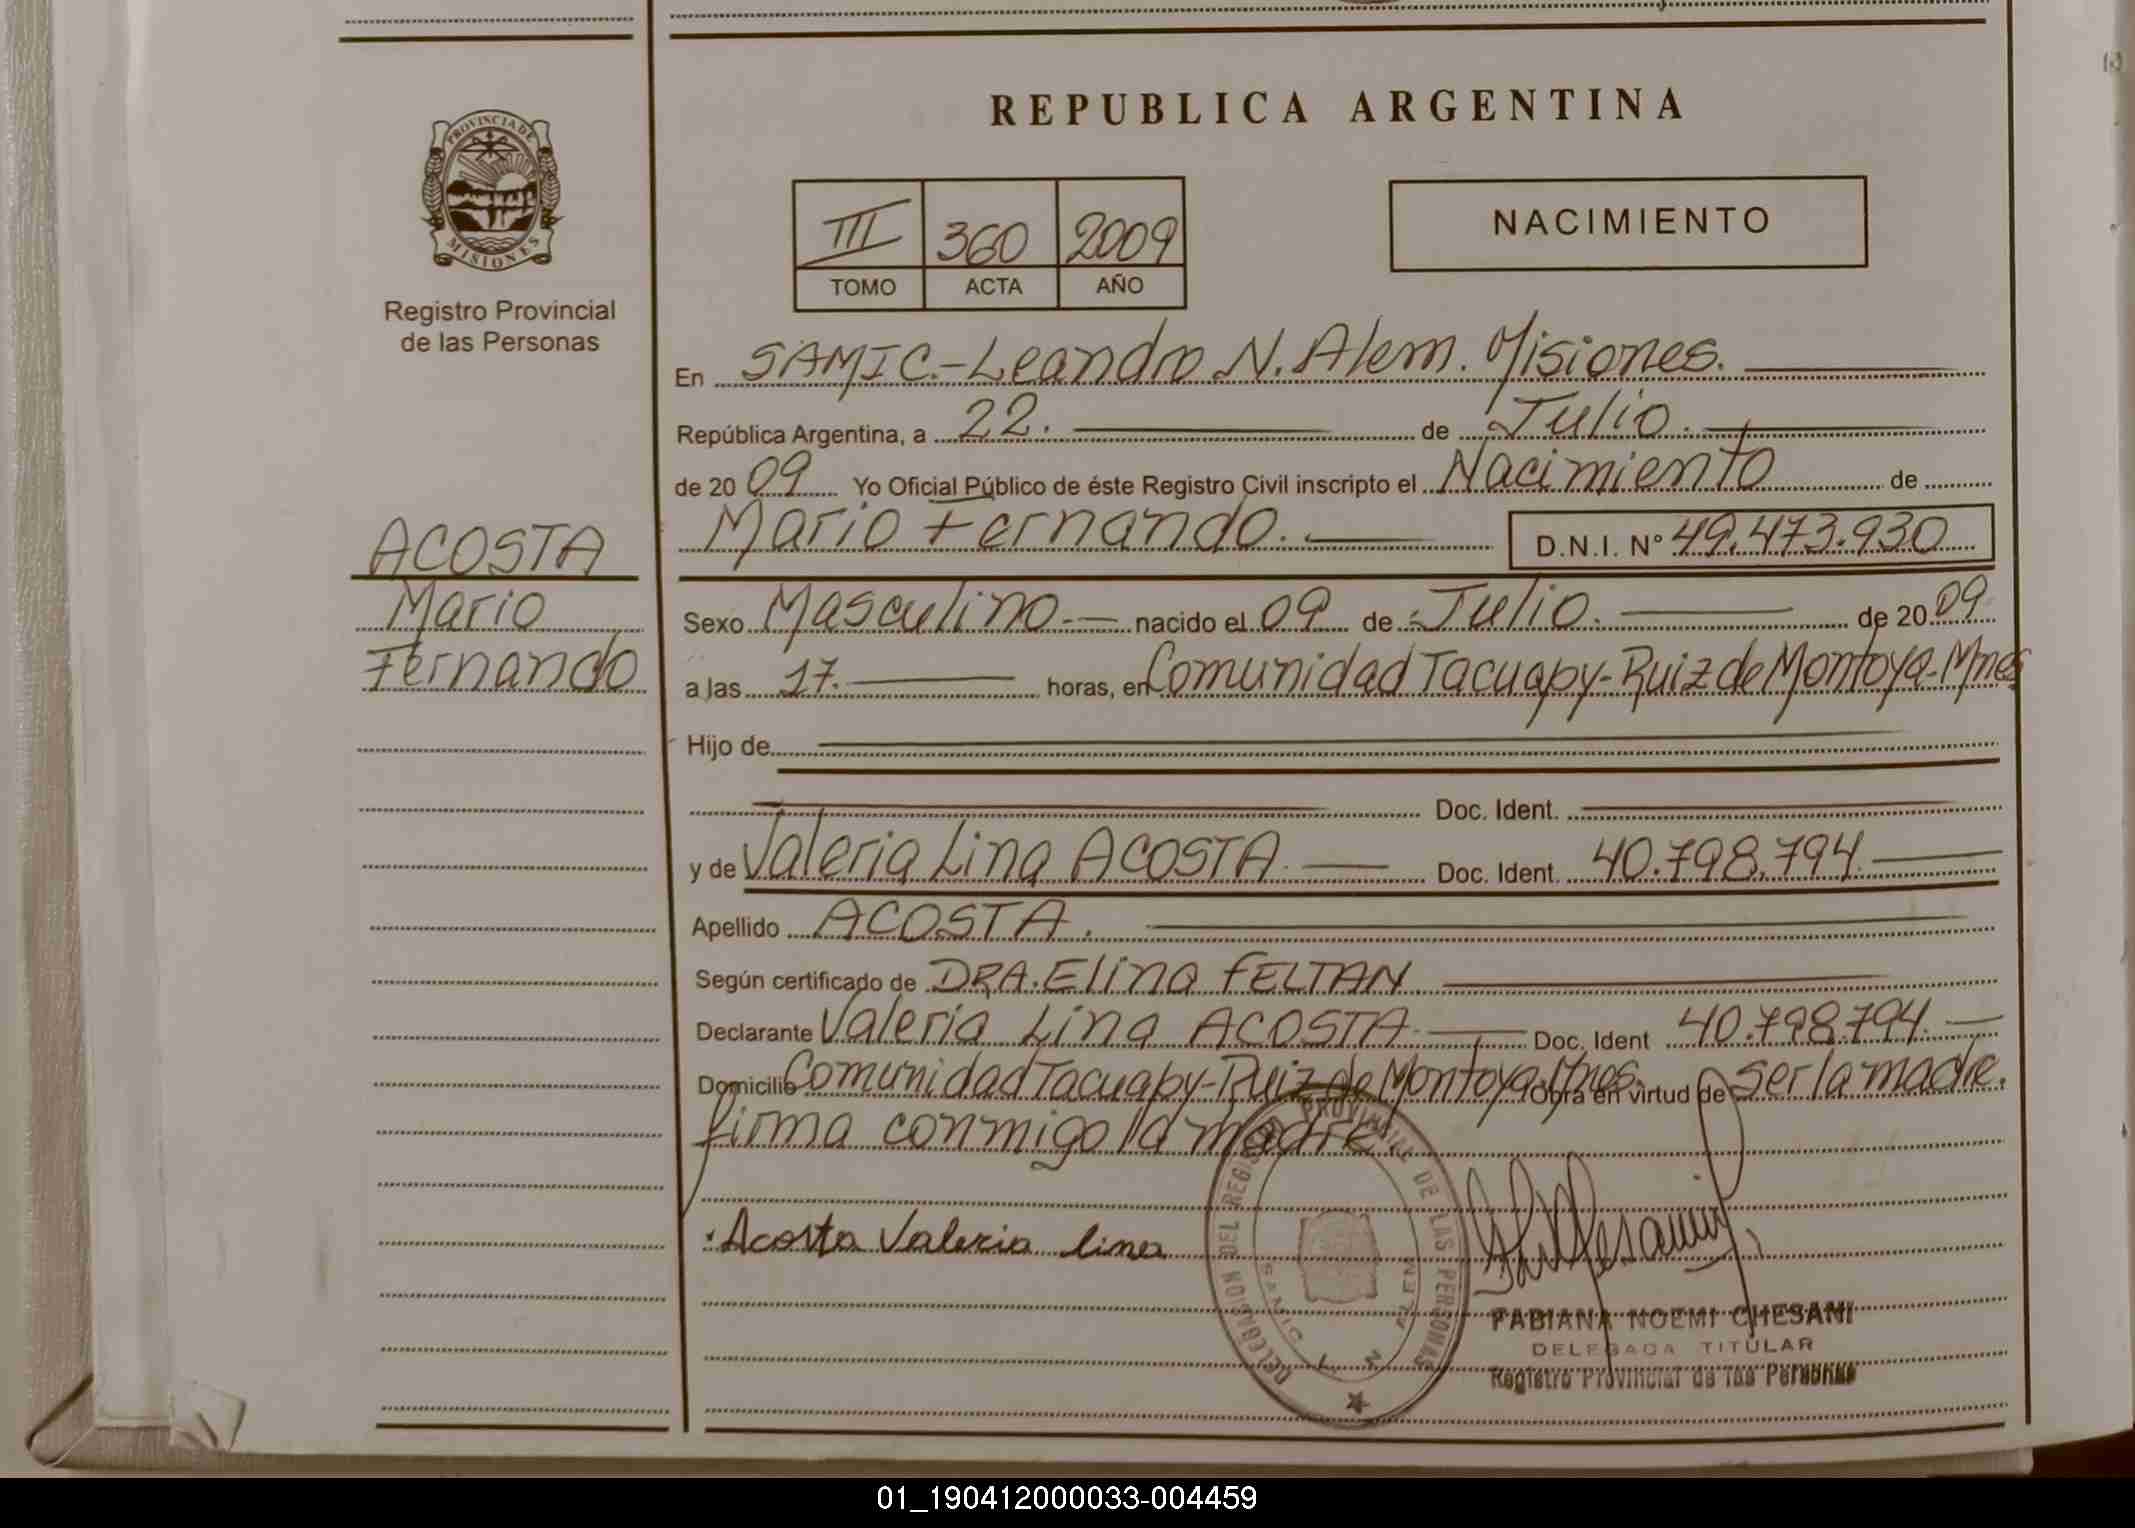 REPUBLICA ARGENTINA
PROVINCIA DE
MISIONES
Registro Provincial
de las Personas
III 360 2009
TOMO ACTA AÑO
NACIMIENTO
En SAMIC.-Leandro N. Alem. Misiones.
República Argentina, a 22. de Julio.
de 2009 Yo Oficial Público de éste Registro Civil inscripto el Nacimiento de
Mario Fernando. D.N.I. Nº 49.473.930
ACOSTA
Mario
Fernando
Sexo Masculino.- nacido el 09 de Julio. de 2009.
a las 17. horas, en Comunidad Tacuapy-Ruiz de Montoya-Mnes
Hijo de
Doc. Ident.
y de Valeria Lina ACOSTA. Doc. Ident. 40.798.794.
Apellido ACOSTA.
Según certificado de DRA. Elina FELTAN
Declarante Valeria Lina ACOSTA. Doc. Ident 40.798.794.
Domicilio Comunidad Tacuapy-Ruiz de Montoya-Mnes. Obra en virtud de ser la madre.
firma conmigo la madre
Acosta Valeria lina
DELEGACION DEL REGISTRO PROVINCIAL DE LAS PERSONAS
SAMIC L N ALEM
FABIANA NOEMI CHESANI
DELEGADA TITULAR
Registro Provincial de las Personas
01_190412000033-004459